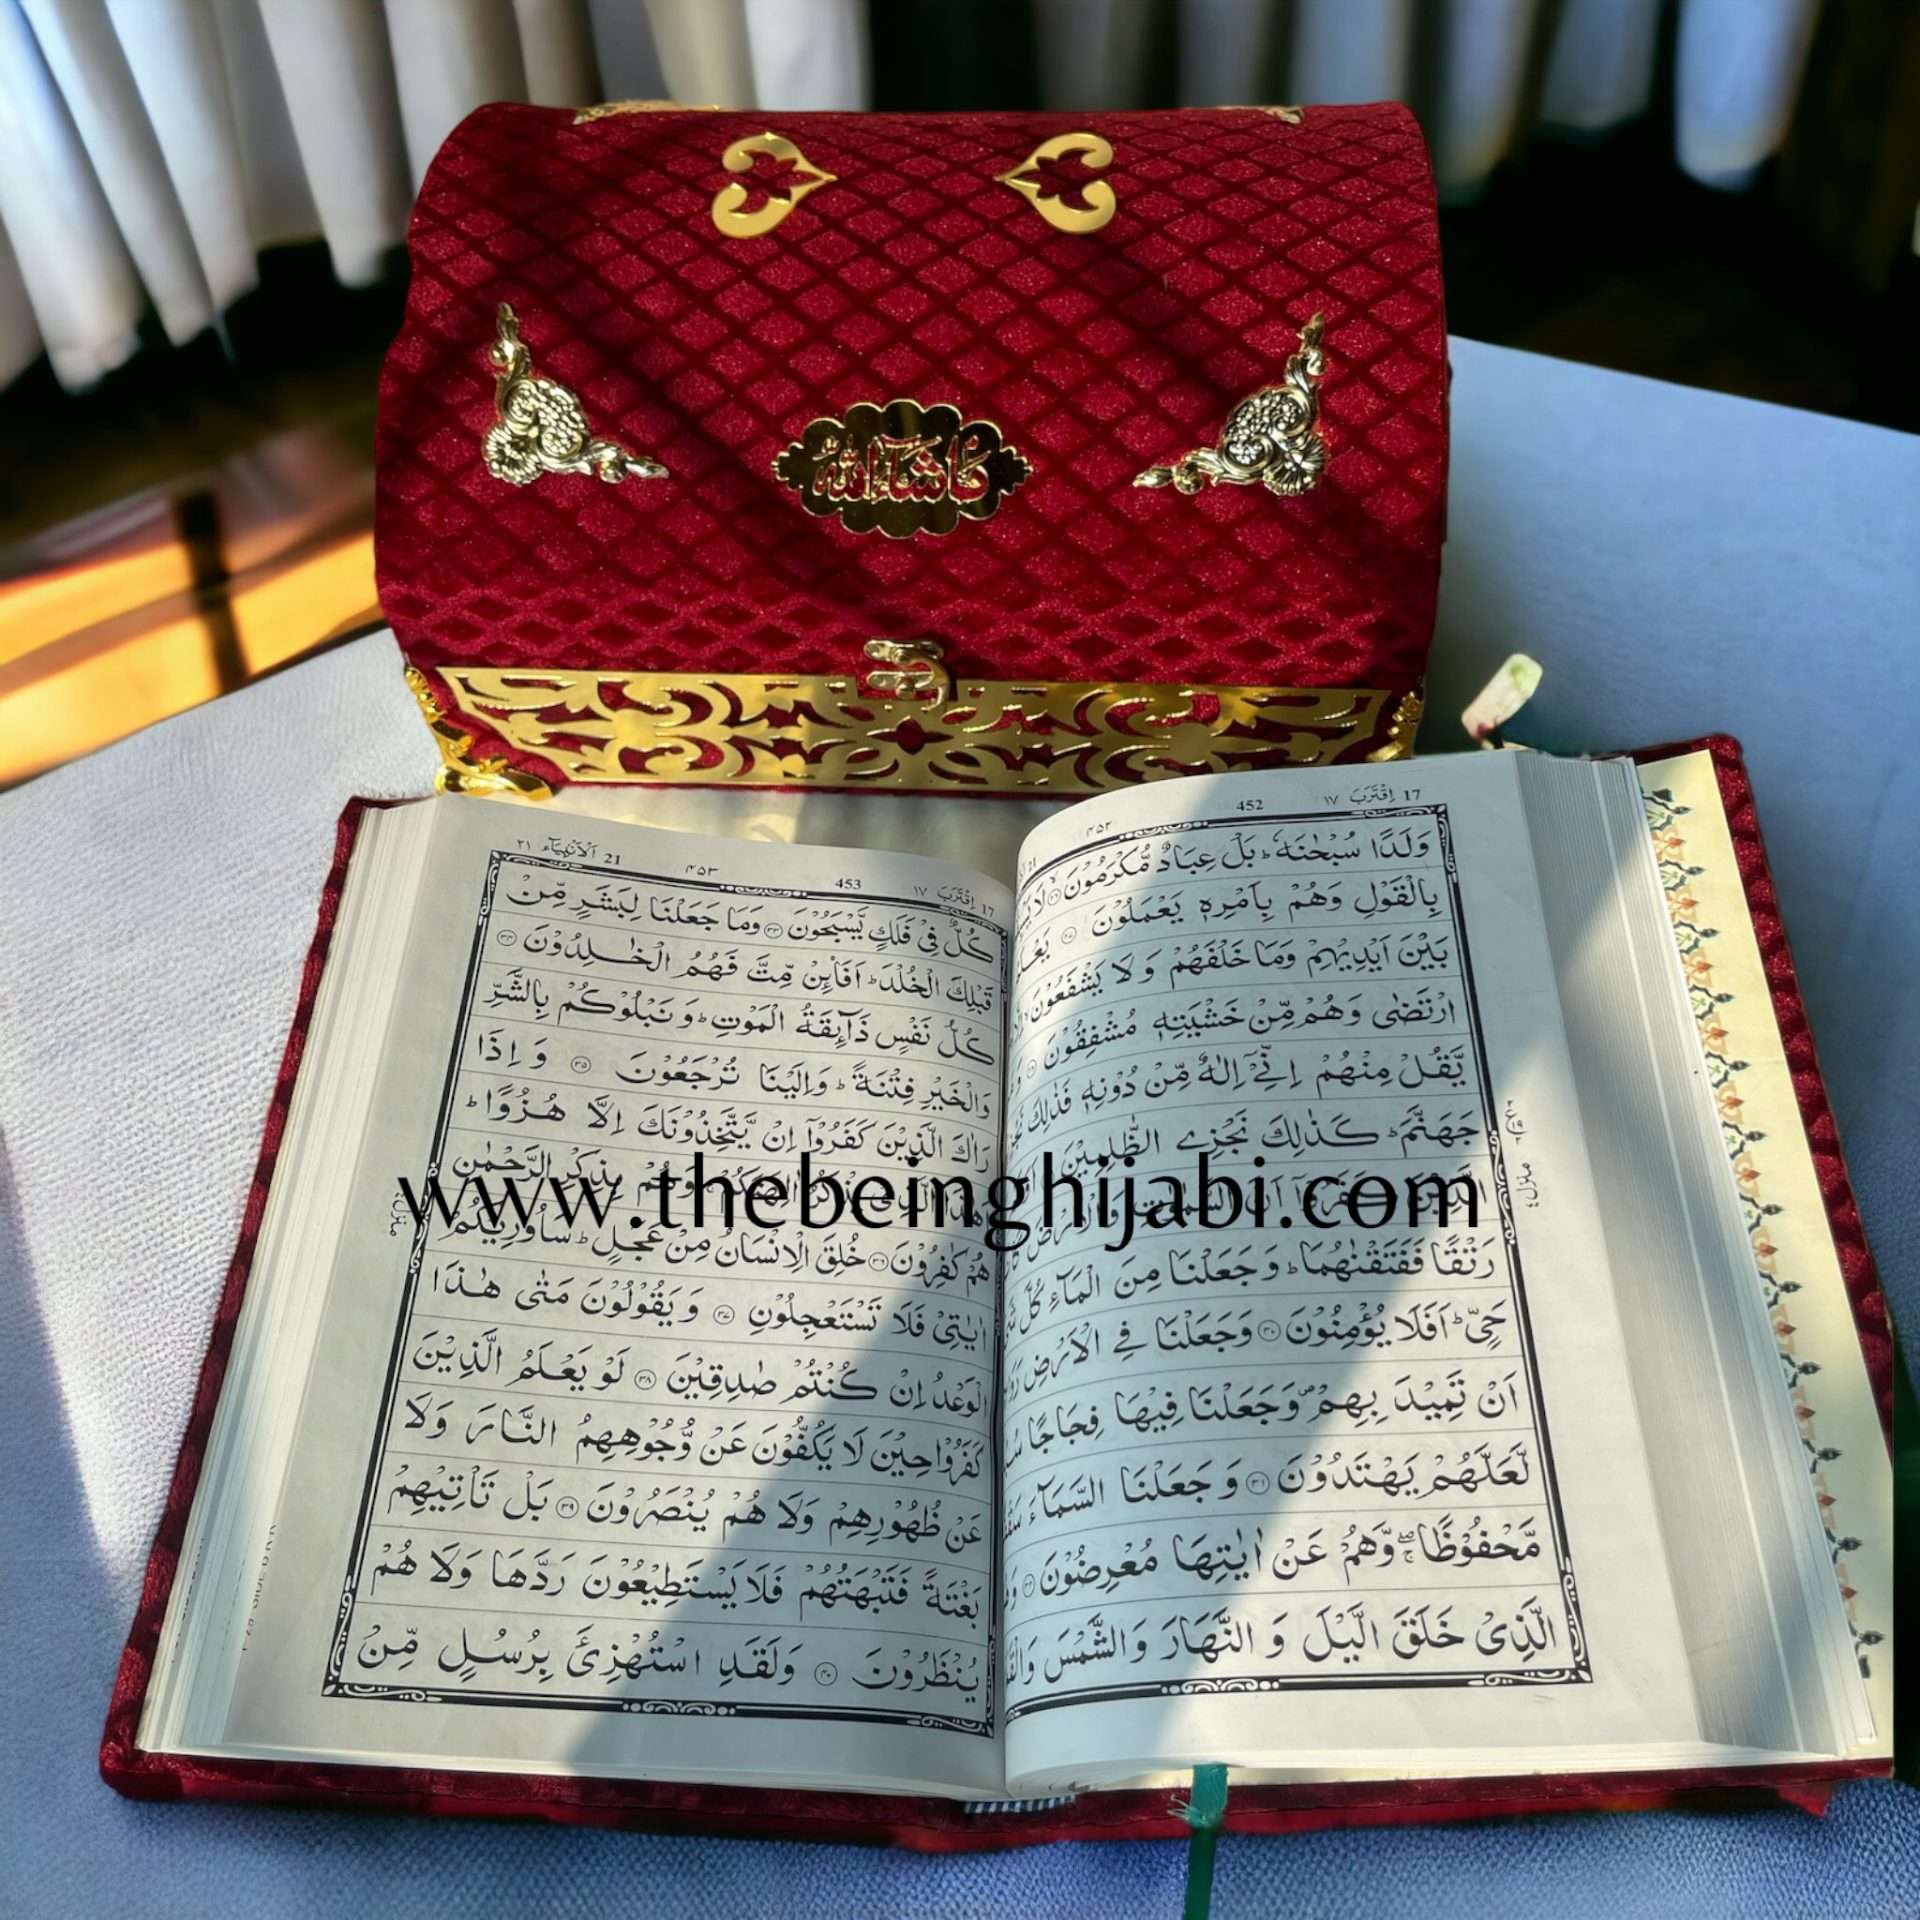 مَاشَآءَاللّٰه
17 اِقْتَرَبَ ١٧
452
٤٥٢
21
وَلَدًا سُبْحٰنَهٗ ؕ بَلْ عِبَادٌ مُّكْرَمُوْنَ ۙ﴿۲۶﴾ لَا
بِالْقَوْلِ وَهُمْ بِاَمْرِهٖ يَعْمَلُوْنَ ﴿۲۷﴾
بَيْنَ اَيْدِيْهِمْ وَمَا خَلْفَهُمْ وَلَا يَشْفَعُوْنَ ۙ
ارْتَضٰى وَهُمْ مِّنْ خَشْيَتِهٖ مُشْفِقُوْنَ ﴿۲۸﴾
يَّقُلْ مِنْهُمْ اِنِّىْۤ اِلٰهٌ مِّنْ دُوْنِهٖ فَذٰلِكَ
جَهَنَّمَ ؕ كَذٰلِكَ نَجْزِى الظّٰلِمِيْنَ
الَّذِيْنَ كَفَرُوْۤا اَنَّ السَّمٰوٰتِ وَالْاَرْضَ
رَتْقًا فَفَتَقْنٰهُمَا ؕ وَجَعَلْنَا مِنَ الْمَآءِ كُلَّ
حَىٍّ ؕ اَفَلَا يُؤْمِنُوْنَ ﴿۳۰﴾ وَجَعَلْنَا فِى الْاَرْضِ
اَنْ تَمِيْدَ بِهِمْ ۪ وَجَعَلْنَا فِيْهَا فِجَاجًا
لَّعَلَّهُمْ يَهْتَدُوْنَ ﴿۳۱﴾ وَجَعَلْنَا السَّمَآءَ
مَّحْفُوْظًا ۖۚ وَّهُمْ عَنْ اٰيٰتِهَا مُعْرِضُوْنَ ﴿۳۲﴾
الَّذِىْ خَلَقَ الَّيْلَ وَ النَّهَارَ وَالشَّمْسَ
منزل ٤
17 اِقْتَرَبَ ١٧
453
٤٥٣
21 اَلْاَنْبِيَآء ٢١
كُلٌّ فِىْ فَلَكٍ يَّسْبَحُوْنَ ﴿۳۳﴾ وَمَا جَعَلْنَا لِبَشَرٍ مِّنْ
قَبْلِكَ الْخُلْدَ ؕ اَفَا۠ئِنْ مِّتَّ فَهُمُ الْخٰلِدُوْنَ ﴿۳۴﴾
كُلُّ نَفْسٍ ذَآئِقَةُ الْمَوْتِ ؕ وَنَبْلُوْكُمْ بِالشَّرِّ
وَالْخَيْرِ فِتْنَةً ؕ وَاِلَيْنَا تُرْجَعُوْنَ ﴿۳۵﴾ وَاِذَا
رَاٰكَ الَّذِيْنَ كَفَرُوْۤا اِنْ يَّتَّخِذُوْنَكَ اِلَّا هُزُوًا ؕ
اَهٰذَا الَّذِىْ يَذْكُرُ اٰلِهَتَكُمْ ۚ وَهُمْ بِذِكْرِ الرَّحْمٰنِ
هُمْ كٰفِرُوْنَ ﴿۳۶﴾ خُلِقَ الْاِنْسَانُ مِنْ عَجَلٍ ؕ سَاُورِيْكُمْ
اٰيٰتِىْ فَلَا تَسْتَعْجِلُوْنِ ﴿۳۷﴾ وَيَقُوْلُوْنَ مَتٰى هٰذَا
الْوَعْدُ اِنْ كُنْتُمْ صٰدِقِيْنَ ﴿۳۸﴾ لَوْ يَعْلَمُ الَّذِيْنَ
كَفَرُوْا حِيْنَ لَا يَكُفُّوْنَ عَنْ وُّجُوْهِهِمُ النَّارَ وَلَا
عَنْ ظُهُوْرِهِمْ وَلَا هُمْ يُنْصَرُوْنَ ﴿۳۹﴾ بَلْ تَاْتِيْهِمْ
بَغْتَةً فَتَبْهَتُهُمْ فَلَا يَسْتَطِيْعُوْنَ رَدَّهَا وَلَا هُمْ
يُنْظَرُوْنَ ﴿۴۰﴾ وَلَقَدِ اسْتُهْزِئَ بِرُسُلٍ مِّنْ
www.thebeinghijabi.com